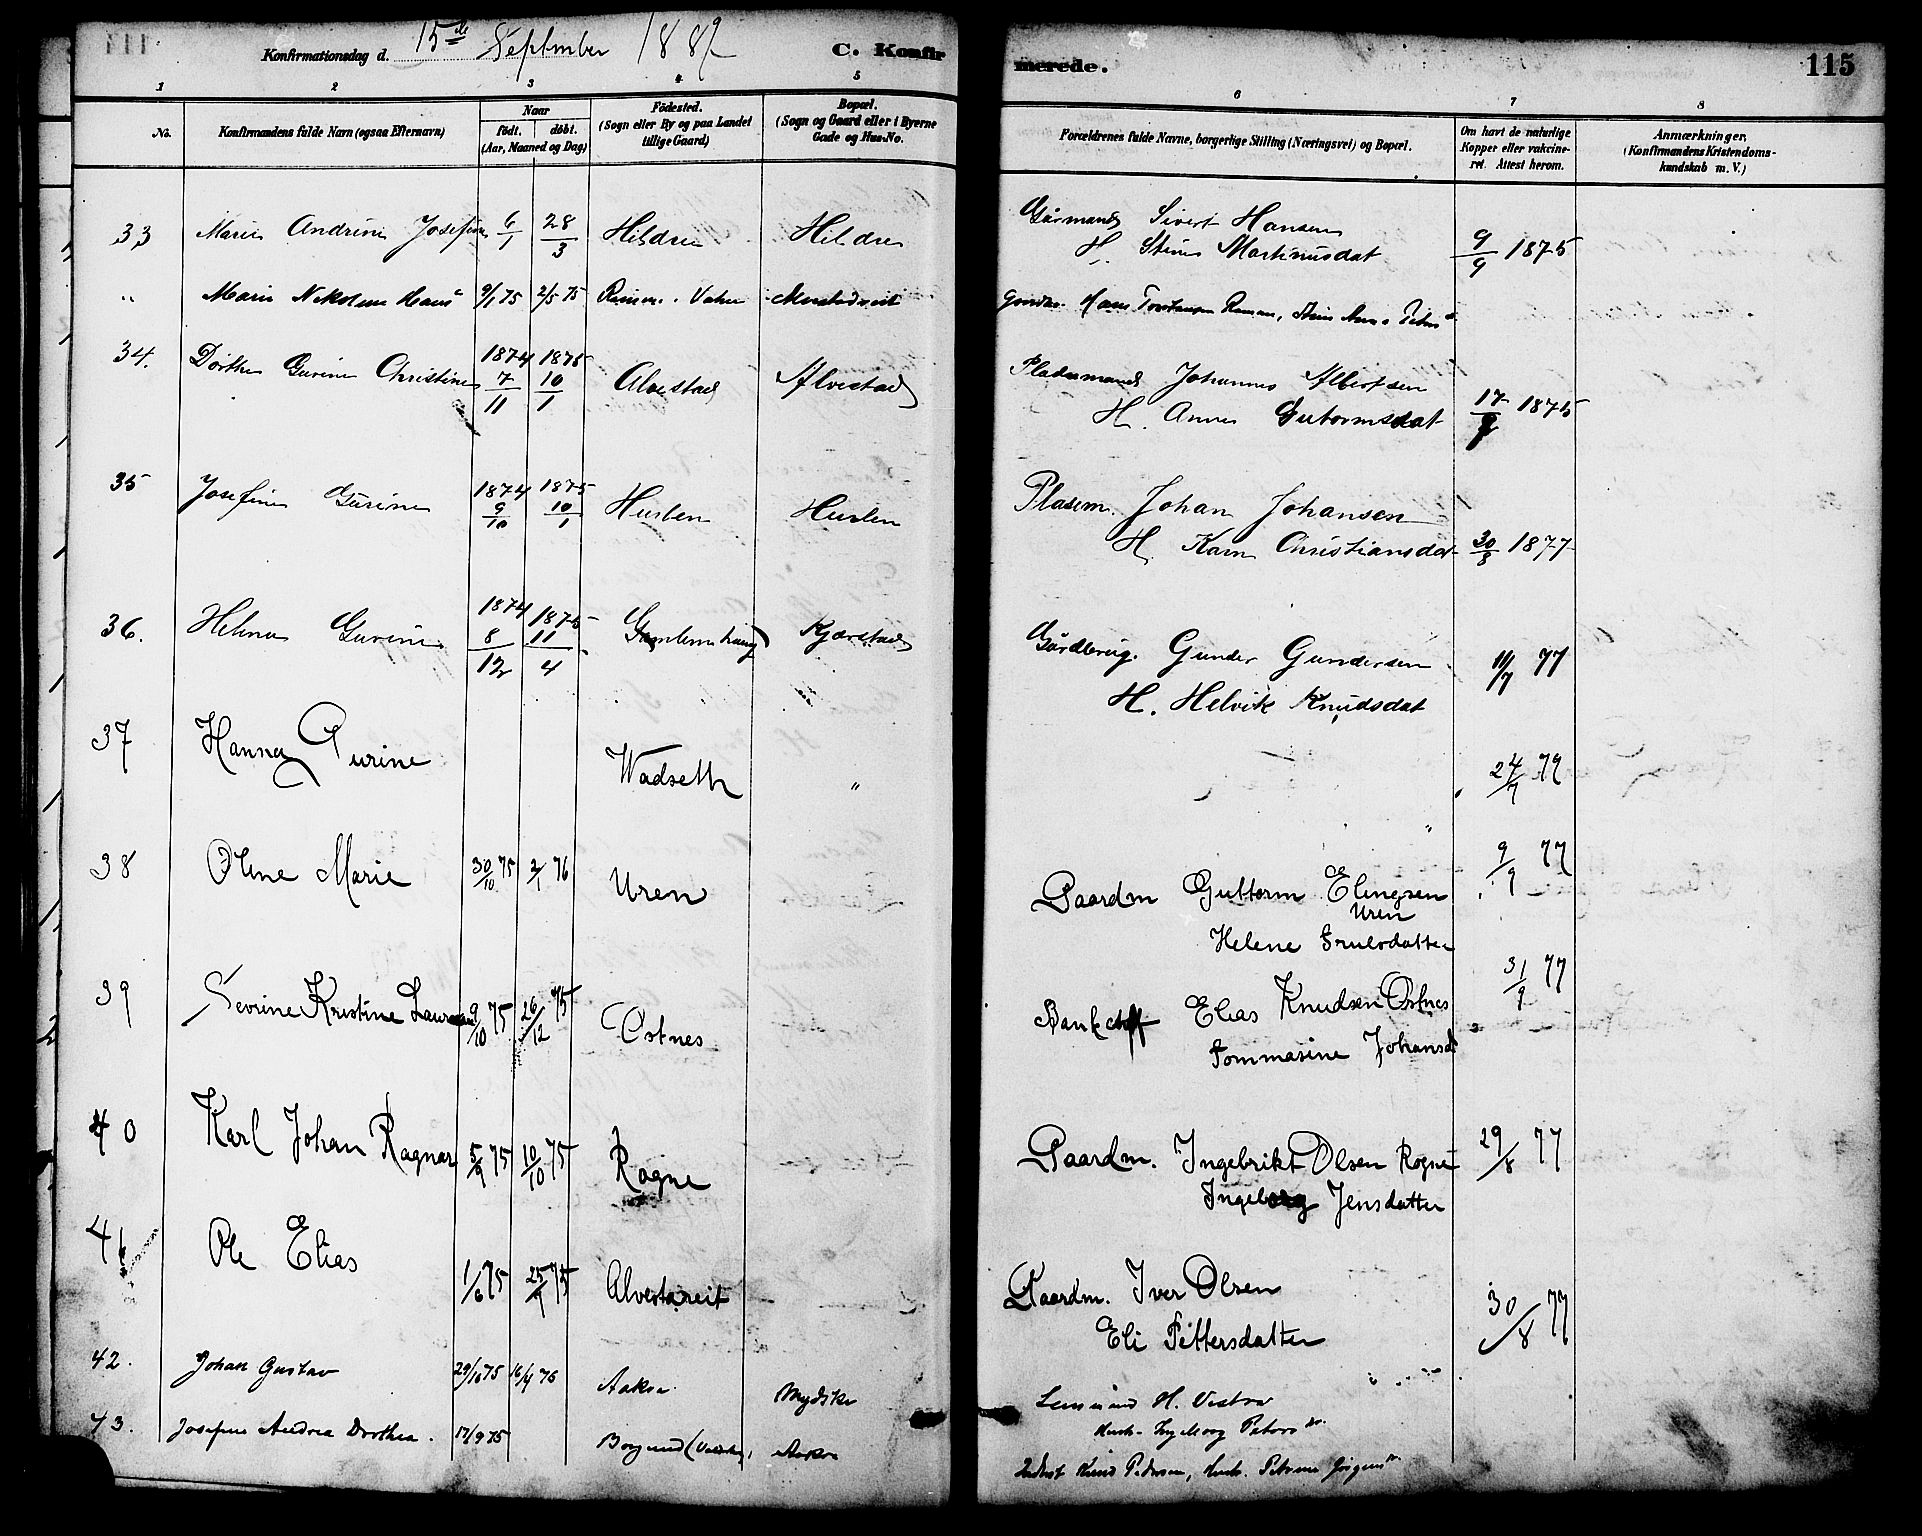 Konfirmationsdag d. 15de September 1889 C. Konfirmerede. 115
1 2 3 4 5 6 7 8
No. Konfirmandens fulde Navn (ogsaa Efternavn) Naar født. døbt. (Aar, Maaned og Dag) Fødested. (Sogn eller By og paa Landet tillige Gaard) Bopæl. (Sogn og Gaard eller i Byerne Gade og Hus-No. Forældrenes fulde Navne, borgerlige Stilling (Næringsvei) og Bopæl. Om havt de naturlige Kopper eller vakcineret. Attest herom. Anmærkninger. (Konfirmandens Kristendomskundskab m. V.)
33 Marie Andrine Josefine 6/1 28/3 Hildre Hildre Gårmand Sivert Hansen 9/9 1875
H. Stine Martinusdat
" Marie Nikoline Hans 9/1 75 2/5 75
34. Dorthe Gurine Christine 1874 7/11 1875 10/1 Alvestad Alvestad Pladsmand Johannes Albertsen
H. Anne Gutormsdat 17/9 1875
35 Josefine Gurine 1874 9/10 1875 10/1 Huslen Huslen Plasem. Johan Johansen
H. Karn Christiansdat 30/8 1877
36. Helene Gurine 1874 8/12 1875 11/4 Gamlemshaug Kjærstad Gårdbrug. Gunder Gundersen 11/7 77
H. Helvik Knudsdat
37 Hanna Gurine Wadseth " 24/7 79
38 Oline Marie 30/10 75 2/1 76 Uren Gaardm Guttorm Elingsen Uren 9/9 77
Helene
39 Sevrine Kristine 9/10 75 26/12 75 Østnes Elias Knudsen Østnes 31/9 77
Tommasine Johansd
40 Karl Johan Ragnar 5/9 75 10/10 75 Rogne Gaardm. Ingebrikt Olsen Rogne 29/8 77
Ingeborg Jensdatter
41 Ole Elias 1/6 75 25/9 75 Alvestareit Gaardm. Iver Olsen 30/8 77
Eli Pettersdatter
42. Johan Gustav 29/10 75 16/4 76 Aakse H. Vestre
43. Josefine Andrea Dorthea. 17/9 75 Borgund Aakse
Knud Pedersen, Hust. Petrine